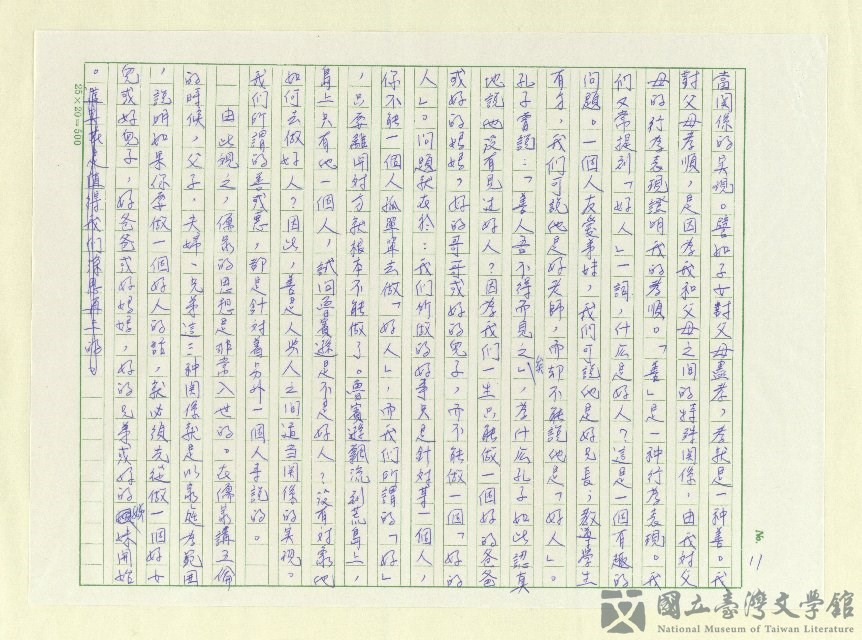 No 11
當關係的实現。譬如子女對父母盡孝，孝就是一种善。我
對父母孝順，是因為我和父母之间的特殊関係，由我对父
母的行為表現證明我的孝順。「善」是一种行為表現。我
们又常提到「好人」一詞，什広是好人？這是一個有趣的
问題。一個人友愛弟妹，我们可說他是好兄長；教導学生
有方，我们可說他是好老師，而却不能說他是「好人」。
孔子嘗說：「善人吾不得而見之矣」，為什広孔子如此認真
地說他沒有見过好人？因為我们一生只能做一個好的爸爸
或好的媽媽，好的哥哥或好的兒子，而不能做一個「好的
人」。问題就在於：我们所做的好事只是針对某一個人，
你不能一個人孤單單去做「好人」，而我们所謂的「好」
，只要離開对方就根本不能做了。魯賓遜飄流到荒島上，
島上只有他一個人，試问魯賓遜是不是好人？沒有对象他
如何去做好人？因此，善是人与人之间適当関係的实現。
我们所謂的善或惡，都是針对着另外一個人来說的。
由此現之，儒家的思想是非常入世的。在儒家講五倫
的時候，父子、夫婦、兄弟這三种関係就是以家庭為範囲
，說明如果你要做一個好人的話，就必須先從做一個好女
兒或好兒子，好爸爸或好媽媽，好的兄弟或好的姊妹開始
。這與我是值得我们深思再三的。
25×20=500
國立臺灣文學館
National Museum of Taiwan Literature